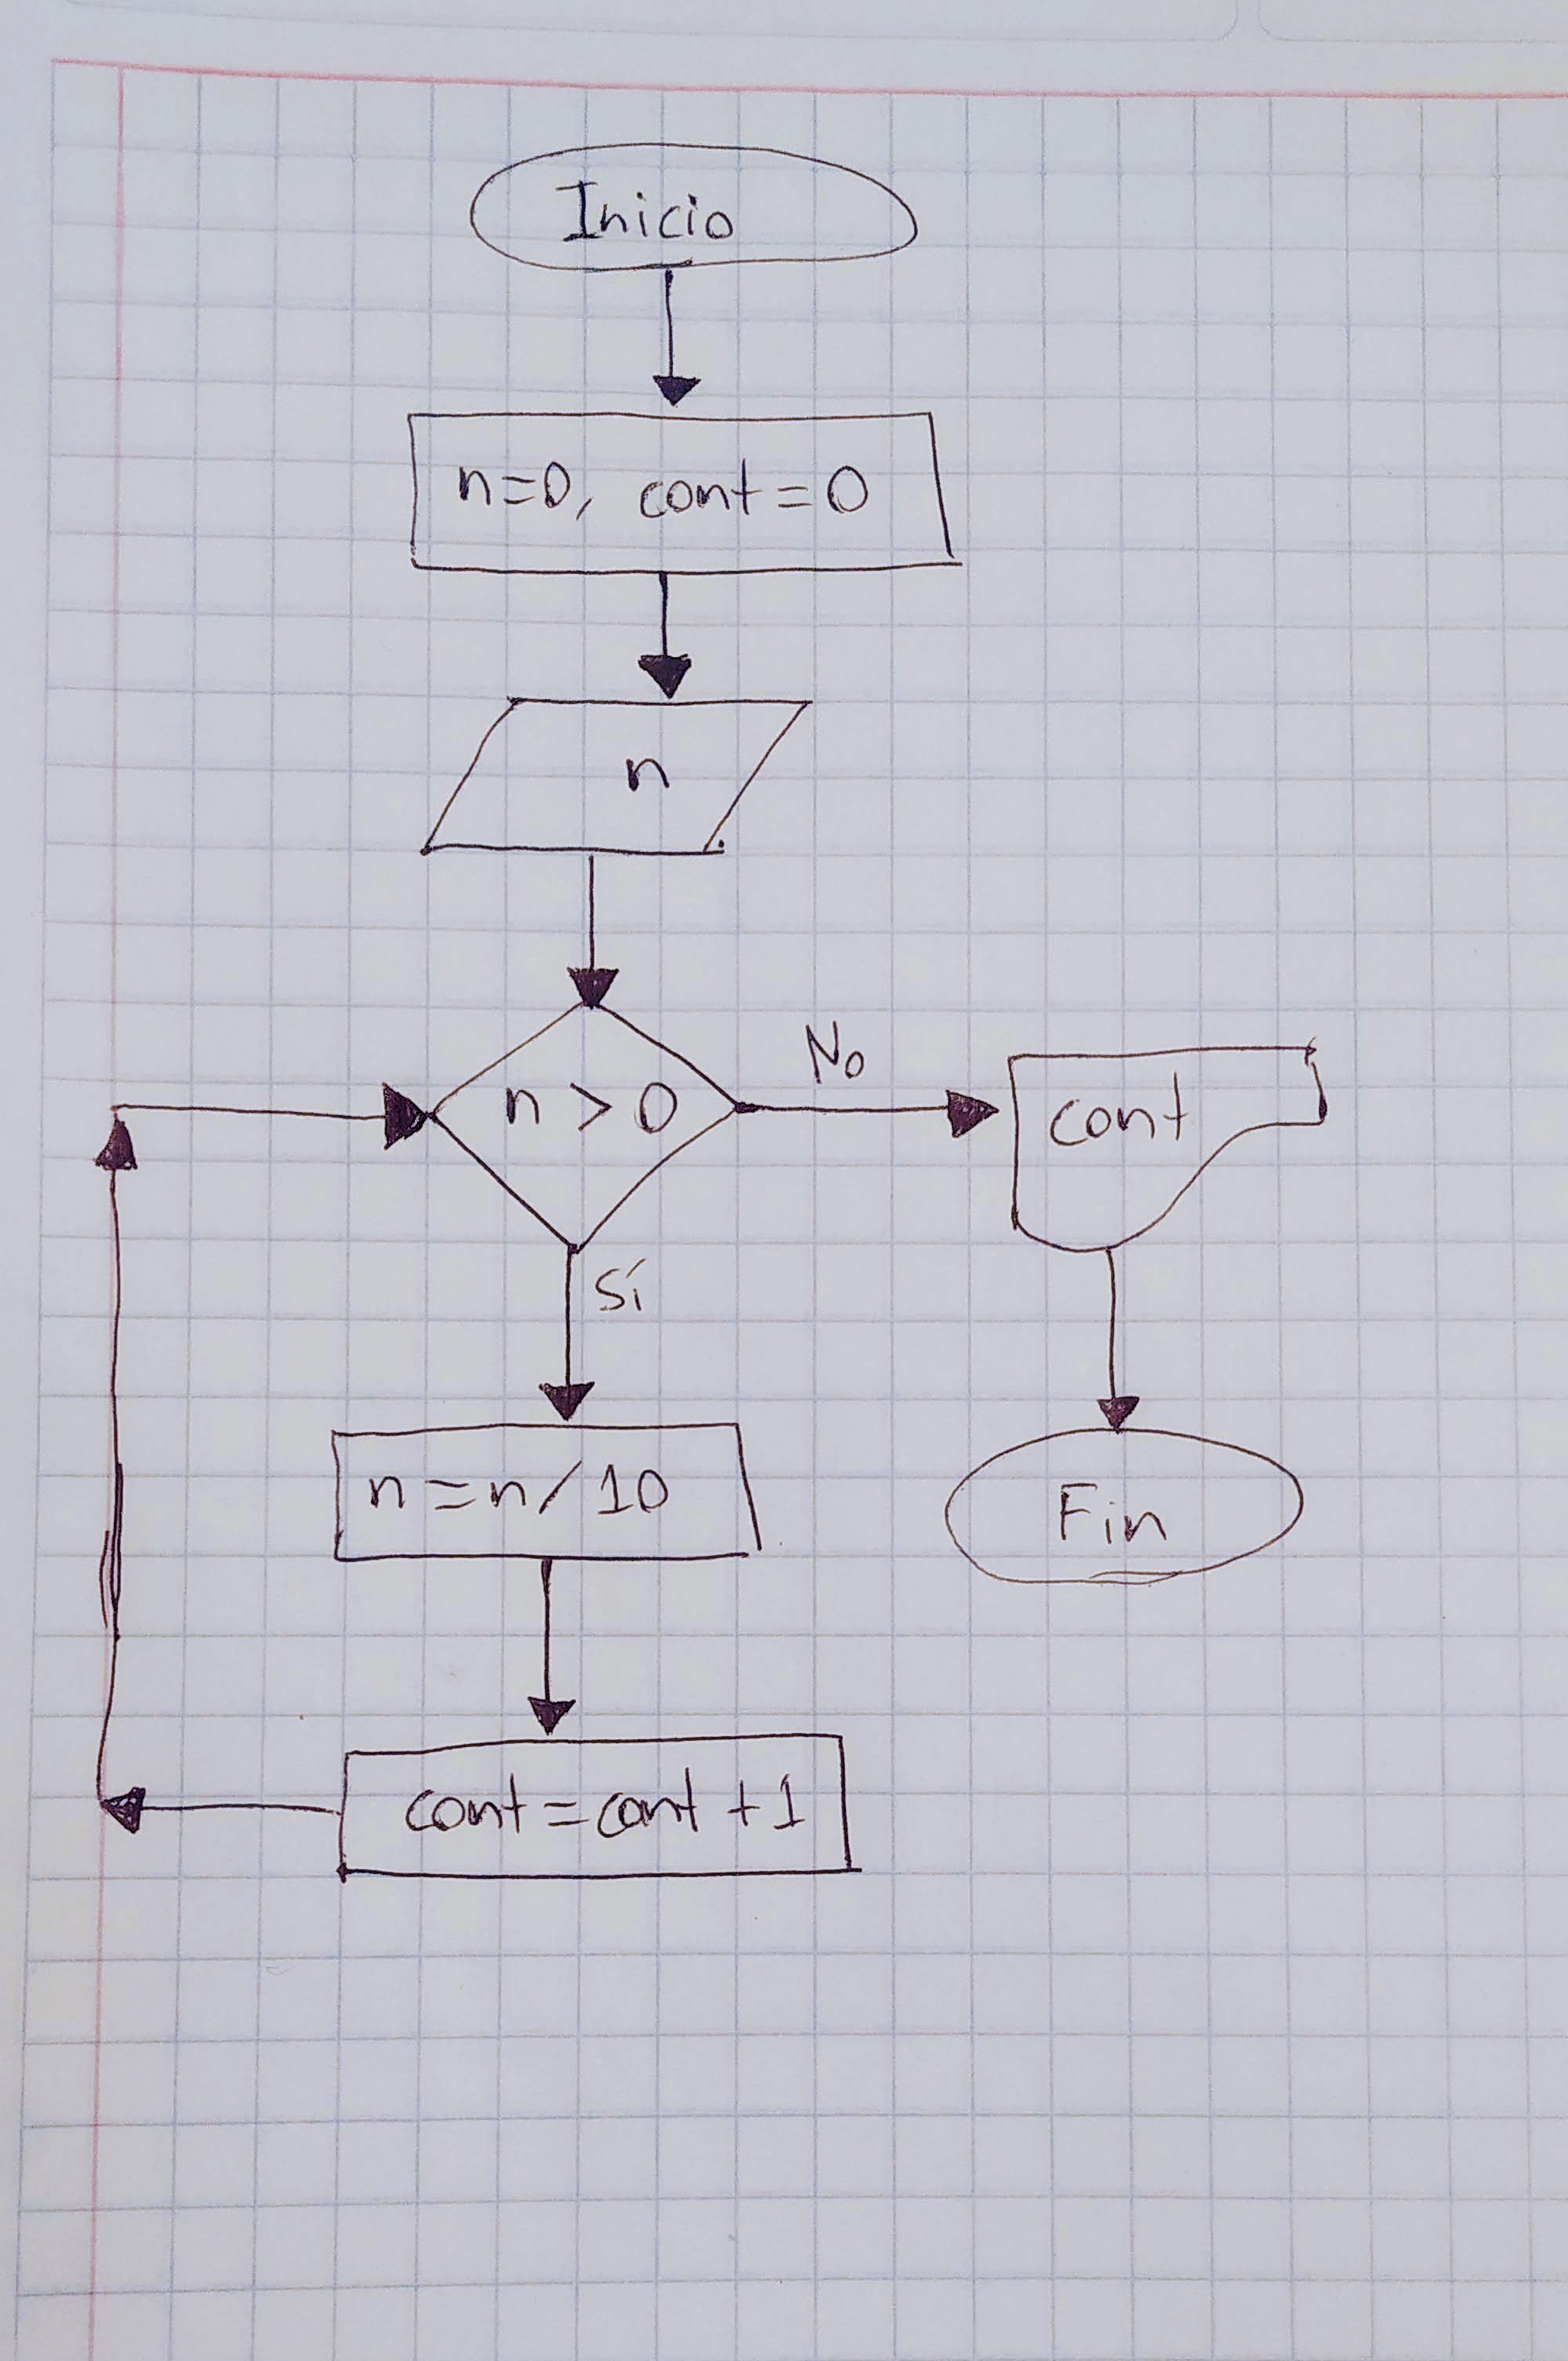 Inicio
n=0, cont=0
n
n>0
No
cont
Sí
n=n/10
Fin
cont=cont+1